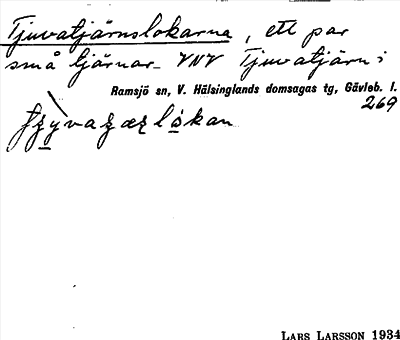 Tjuvatjärnslokarna, ett par
små tjärnar VNV Tjuvatjärn;
Ramsjö sn, V. Hälsinglands domsagas tg, Gävleb. l.
269
LARS LARSSON 1934